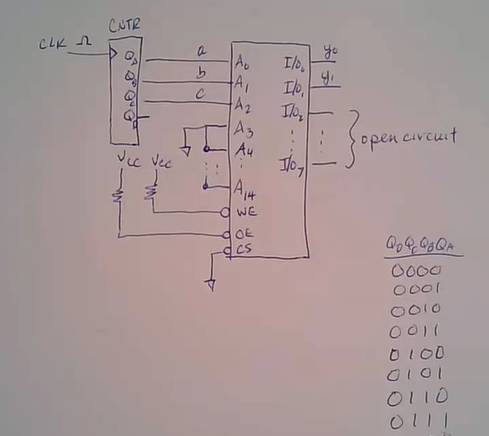 CNTR
CLK
QA
QB
QC
QD
a
b
c
A0
A1
A2
A3
A4
A14
WE
OE
CS
I/O0
I/O1
I/O2
I/O7
y0
y1
open circuit
VCC
VCC
QD QC QB QA
0000
0001
0010
0011
0100
0101
0110
0111